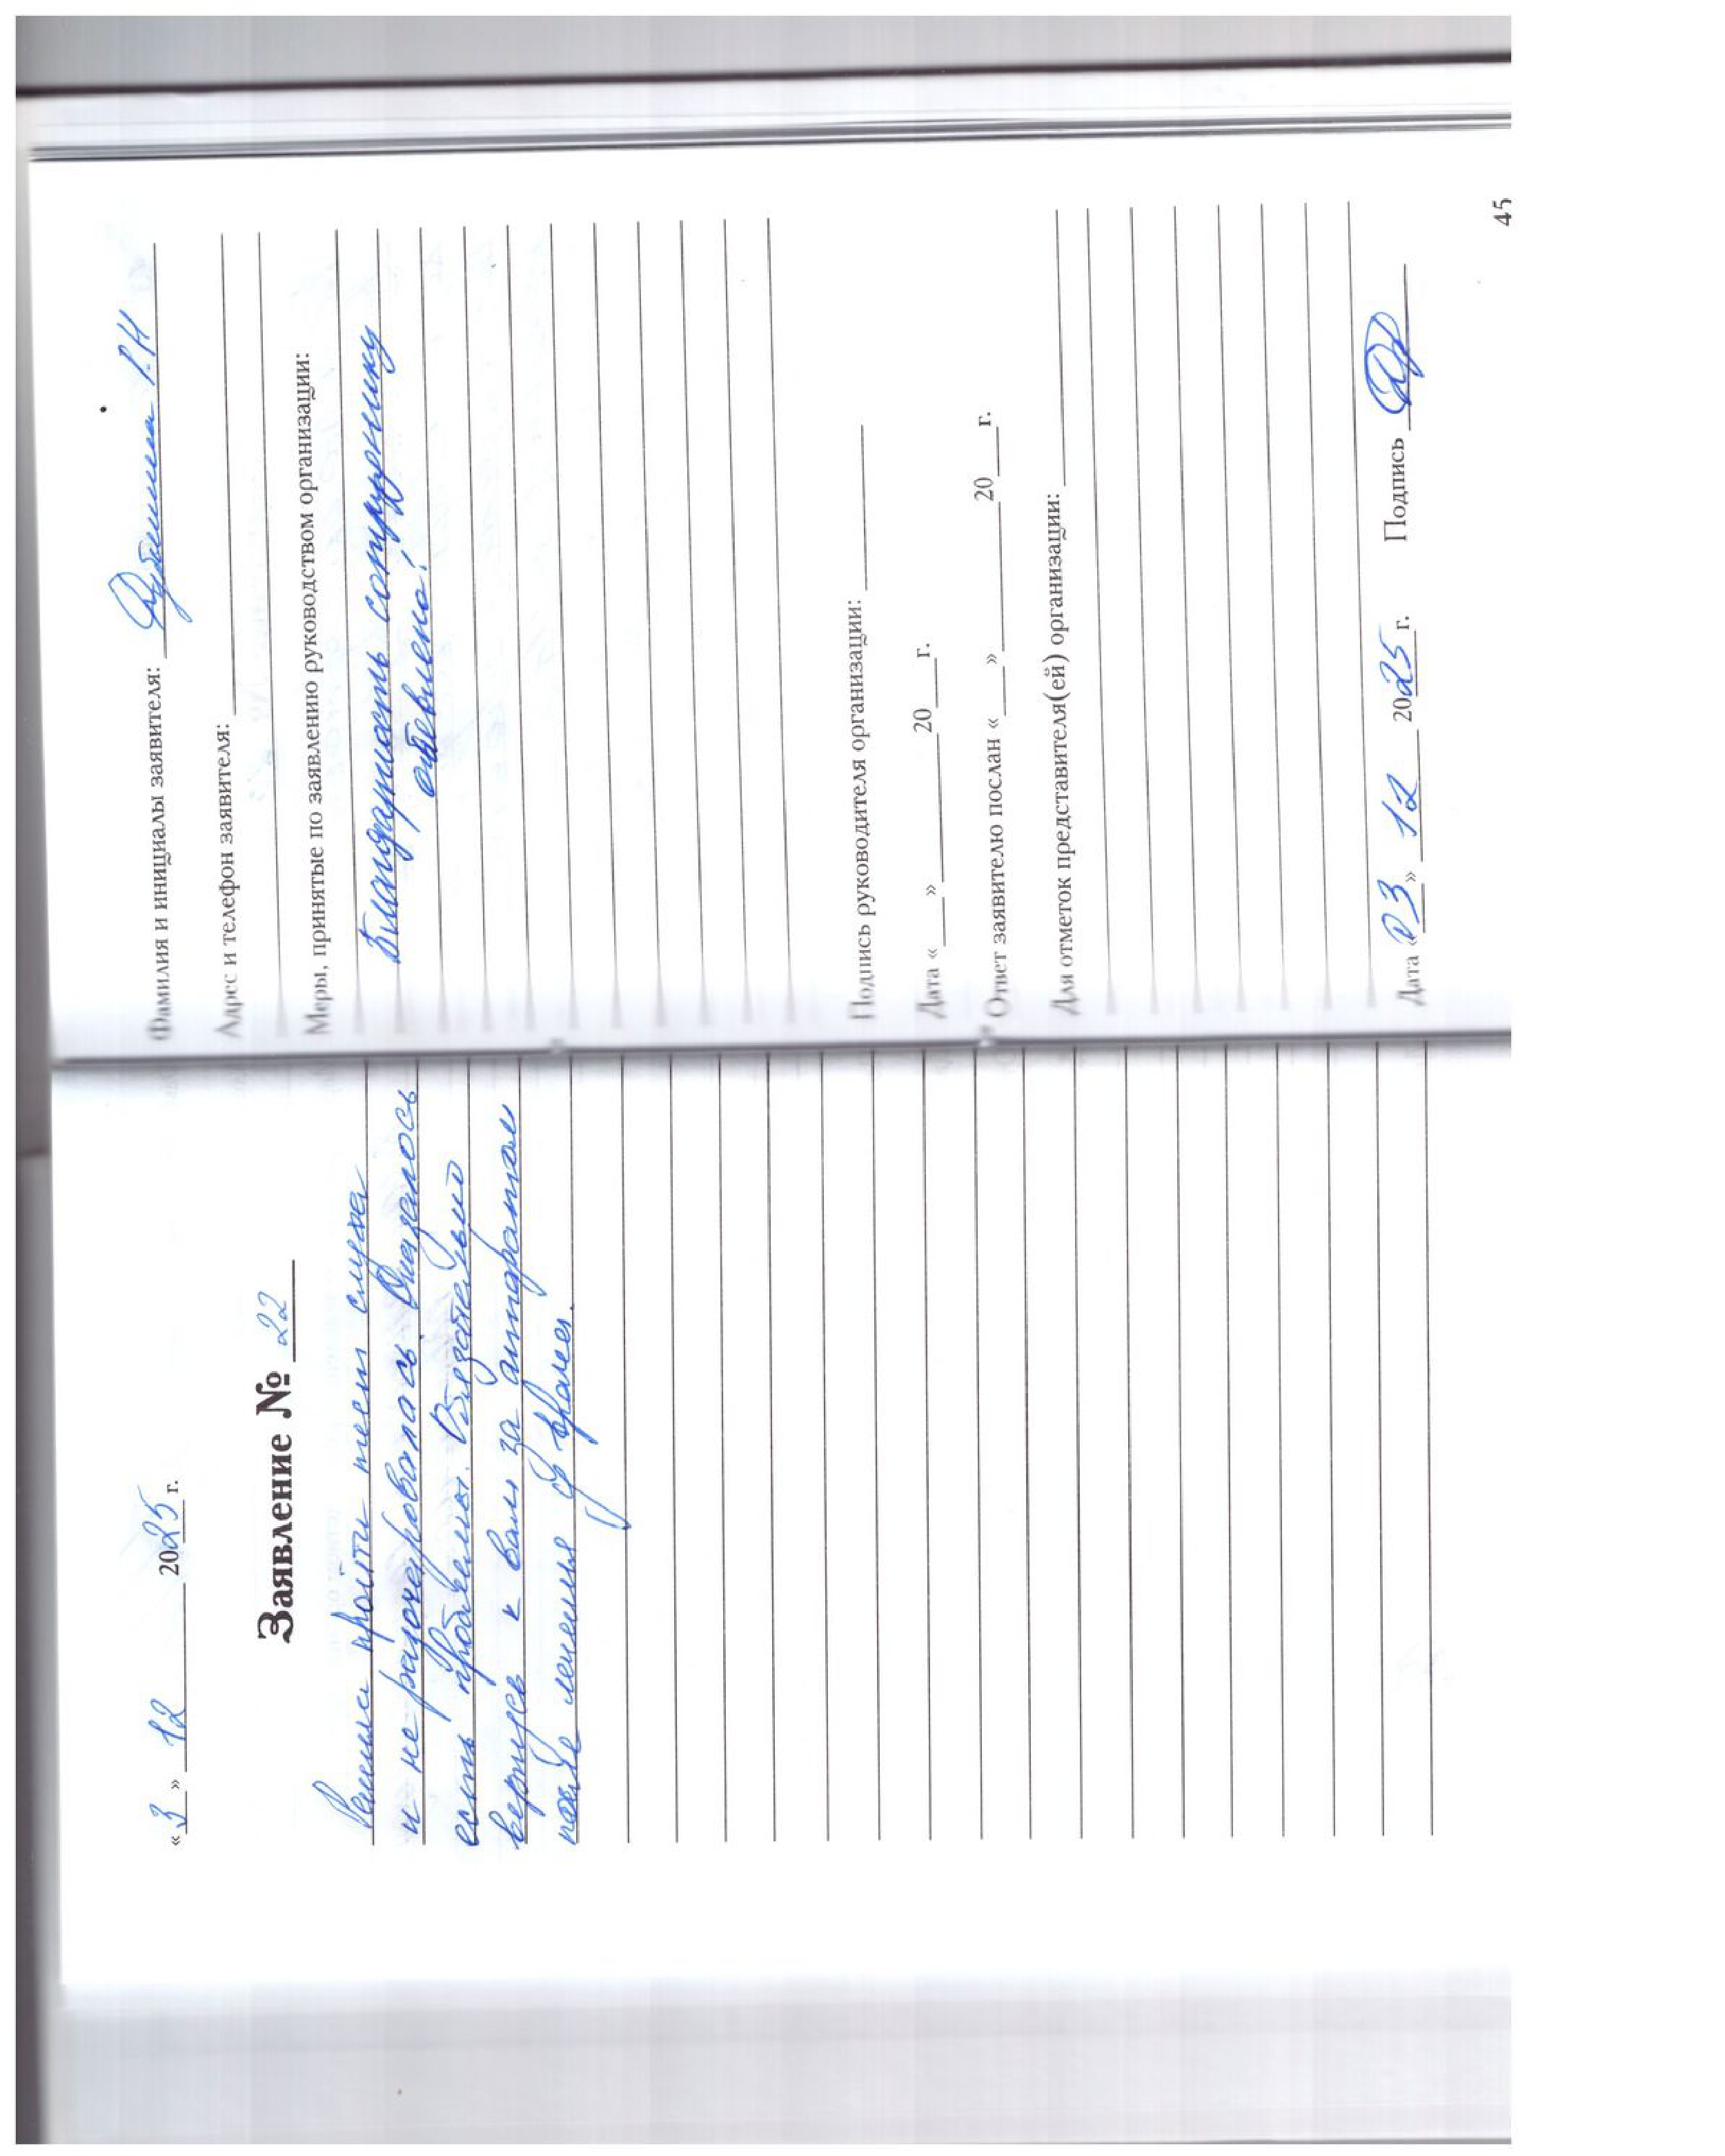 «3» 12 2025 г.
Заявление № 22
Решила пройти тест слуха
и не разочеровалась. Оказалось
есть проблемы. Обязательно
вернусь к вам за аппаратом
после лечения у врача.
Фамилия и инициалы заявителя: Дубинина Г.Н
Адрес и телефон заявителя:
Меры, принятые по заявлению руководством организации:
Благодарность сотруднику
объявлена!
Подпись руководителя организации:
Дата «___» ______ 20___г.
Ответ заявителю послан «___» ______ 20___г.
Для отметок представителя(ей) организации:
Дата «03» 12 2025 г. Подпись
45